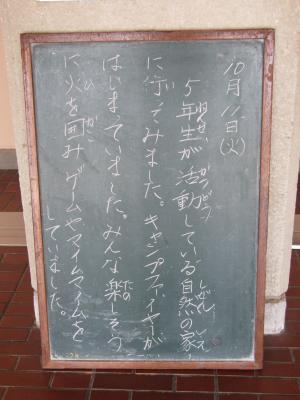 10月11日(火)
5年生が活動している自然の家
に行ってみました。キャンプファイヤーが
はじまっていました。みんな楽しそう
に火を囲みゲームやマイムマイムを
していました。